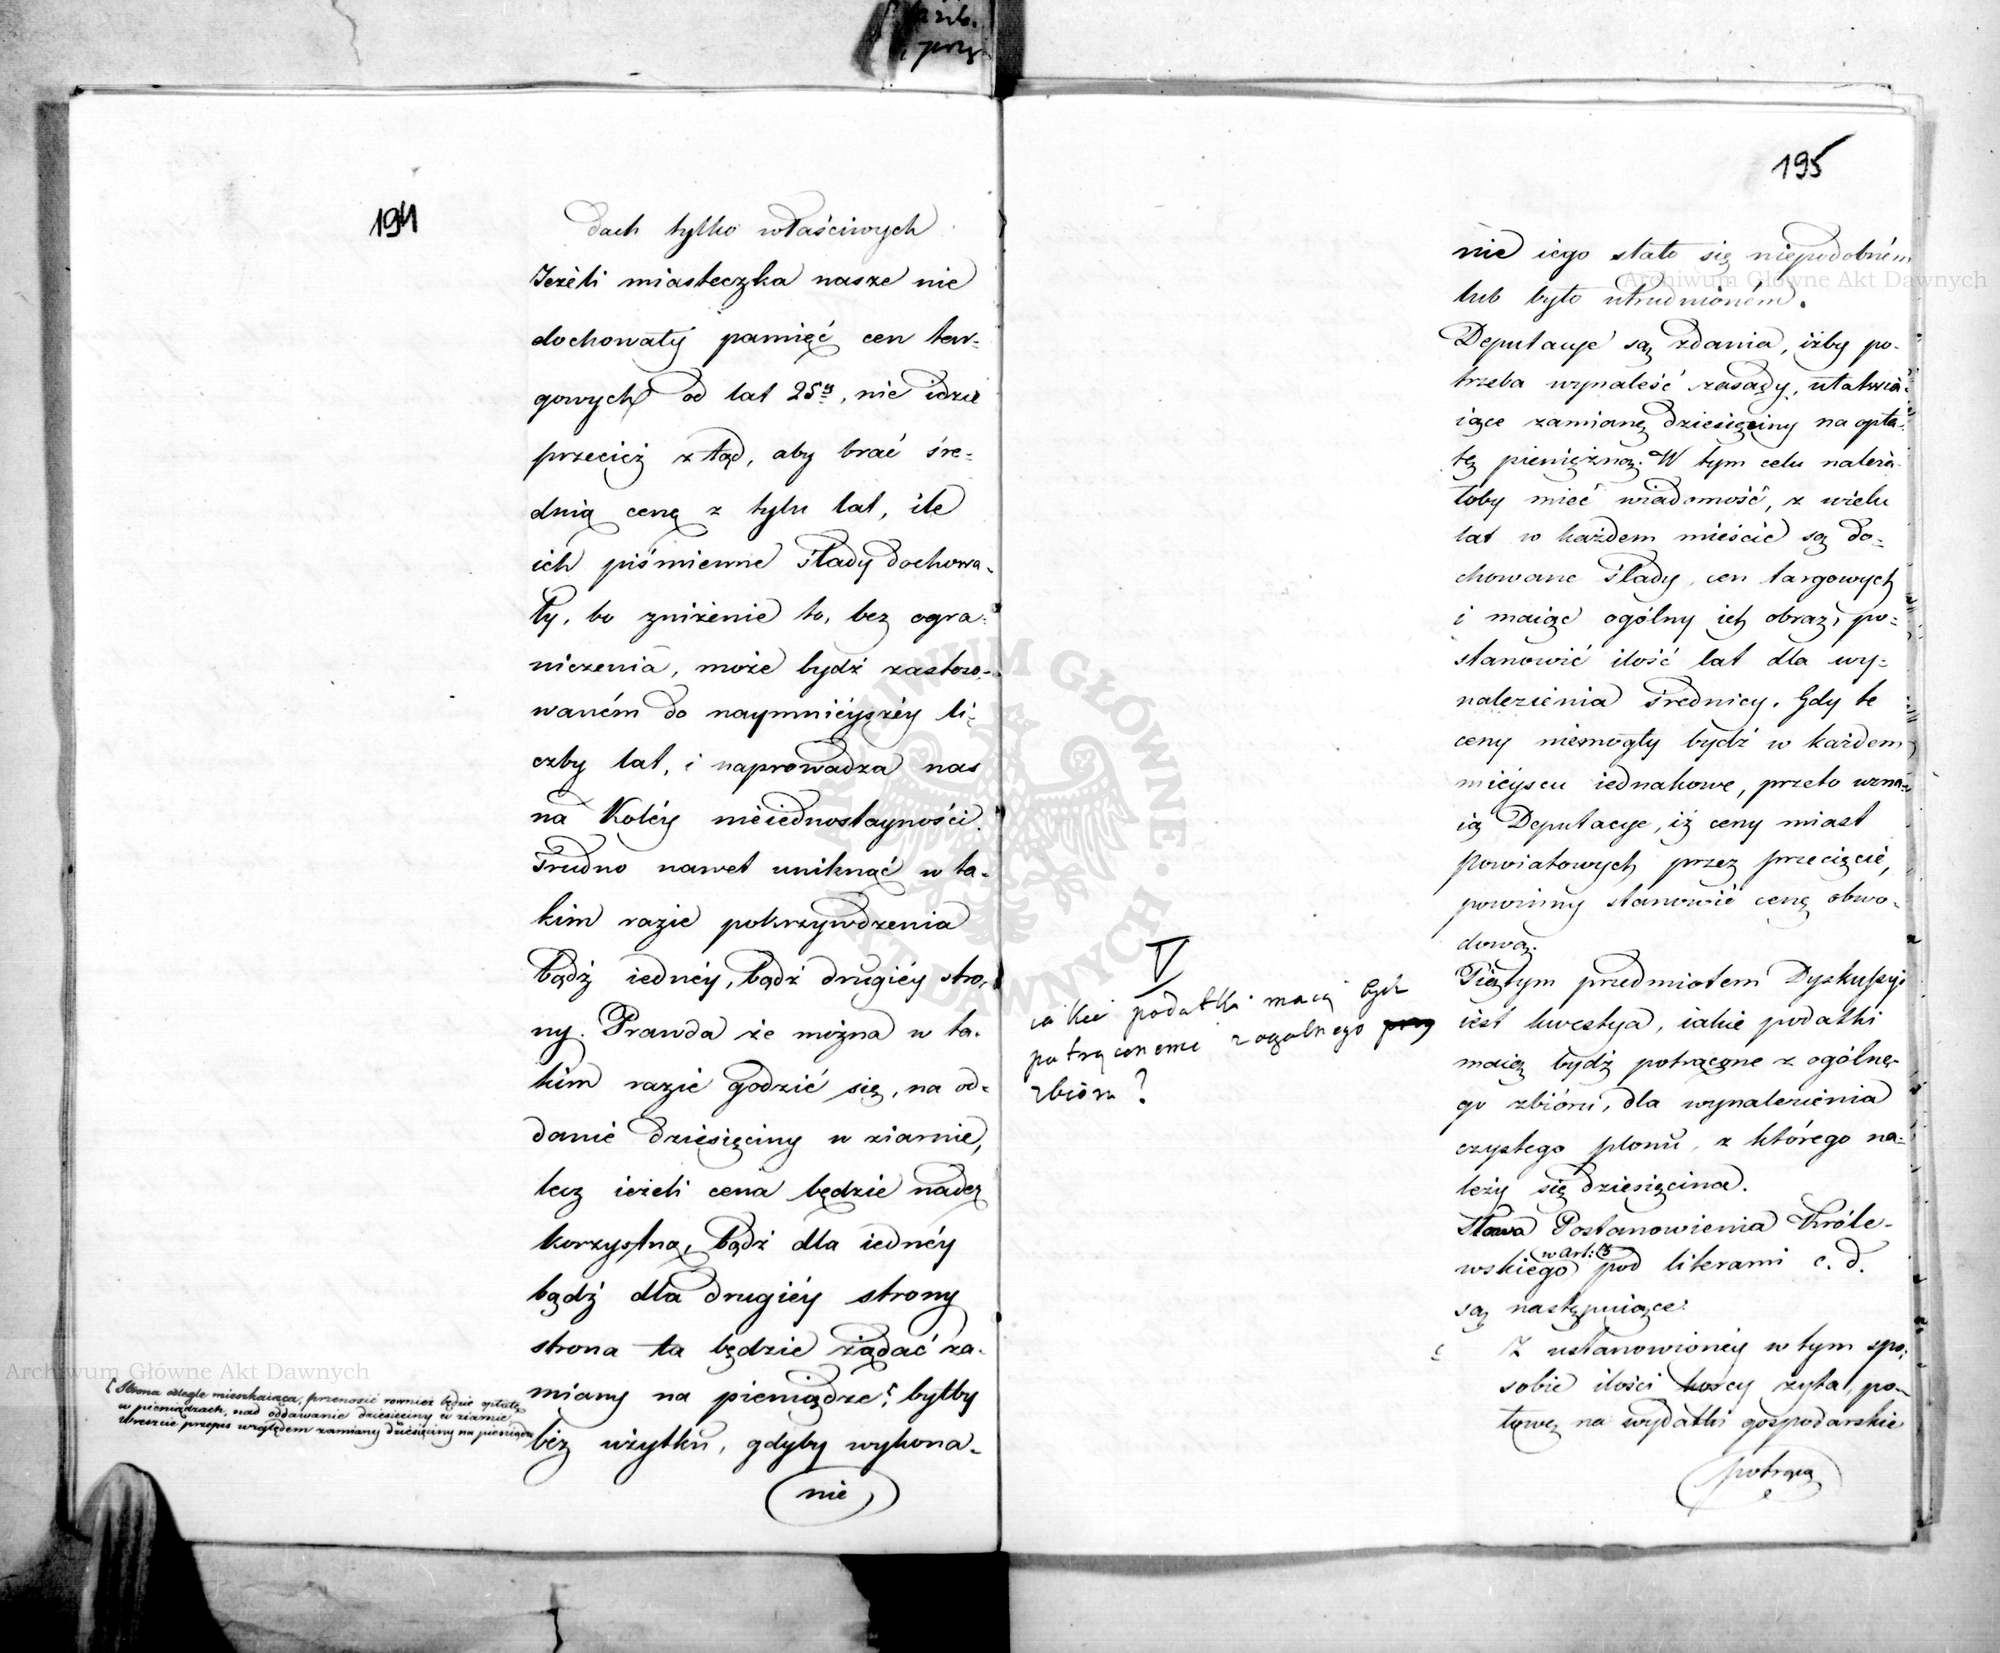 194
dach tylko właściwych
Jeżeli miasteczka nasze nie
dochowały pamięć cen tar-
gowych od lat 25u, nie idzie
przecięż ztąd, aby brać śre-
dnią cenę z tylu lat, ile
ich piśmienne ślady dochowa-
ły, bo zniżenie to, bez ogra-
niczenia, może bydź zastoso-
waném do naymnieyszéy li-
czby lat, i naprowadza nas
na Koléy nieiednostayności.
Trudno nawet uniknąć w ta-
kim razie pokrzywdzenia
bądź iednéy, bądź drugiéy stro-
ny. Prawda że można w ta-
kim razie godzić się, na od-
danie dziesięciny w ziarnie,
lecz ieżeli cena będzie nadez
korzystną, bądź dla iednéy
bądź dla drugiéy strony
strona ta będzie żądać za-
miany na pieniądze, byłby
bez użytku, gdyby wykona-
nie
Strona odlegle mieszkaiąca, przenosić również będzie opłatę
w pieniądzach, nad oddawanie dziesięciny w ziarnie
wreszcie przepis względem zamiany dziesięciny na pieniądze
195
nie iego stało się niepodobném
lub było utrudnioném.
Deputacye są zdania, iżby po-
trzeba wynaleść zasady, ułatwia-
iące zamianę dziesięciny na opła-
tę pieniężną. W tym celu należa-
łoby mieć wiadomość, z wielu
lat w każdem mieście są do-
chowane ślady, cen targowych
i maiąc ogólny ich obraz, po-
stanowić ilość lat dla wy-
nalezienia średnicy. Gdy te
ceny niemogły bydź w każdem
mieyscu iednakowe, przeto uzna-
ią Deputacye, iż ceny miast
powiatowych przez przecięcie,
powinny stanowić cenę obwo-
dową.
V
iakie podatki maią bydź
potrąconemi z ogolnego
zbioru?
Piątym przedmiotem Dyskussyi
iest kwestya, iakie podatki
maią bydź potrącone z ogólne-
go zbioru, dla wynalezienia
czystego plonu, z którego na-
leży się dziesięcina.
Słowa Postanowienia Króle-
w Art: 3
wskiego pod literami c. d.
są następuiące:
c Z ustanowionéy w tym spo-
sobie ilości korcy żyta, po-
łowę na wydatki gospodarskie
potrąca
Archiwum Główne Akt Dawnych
Archiwum Główne Akt Dawnych
ARCHIWUM GŁÓWNE AKT DAWNYCH